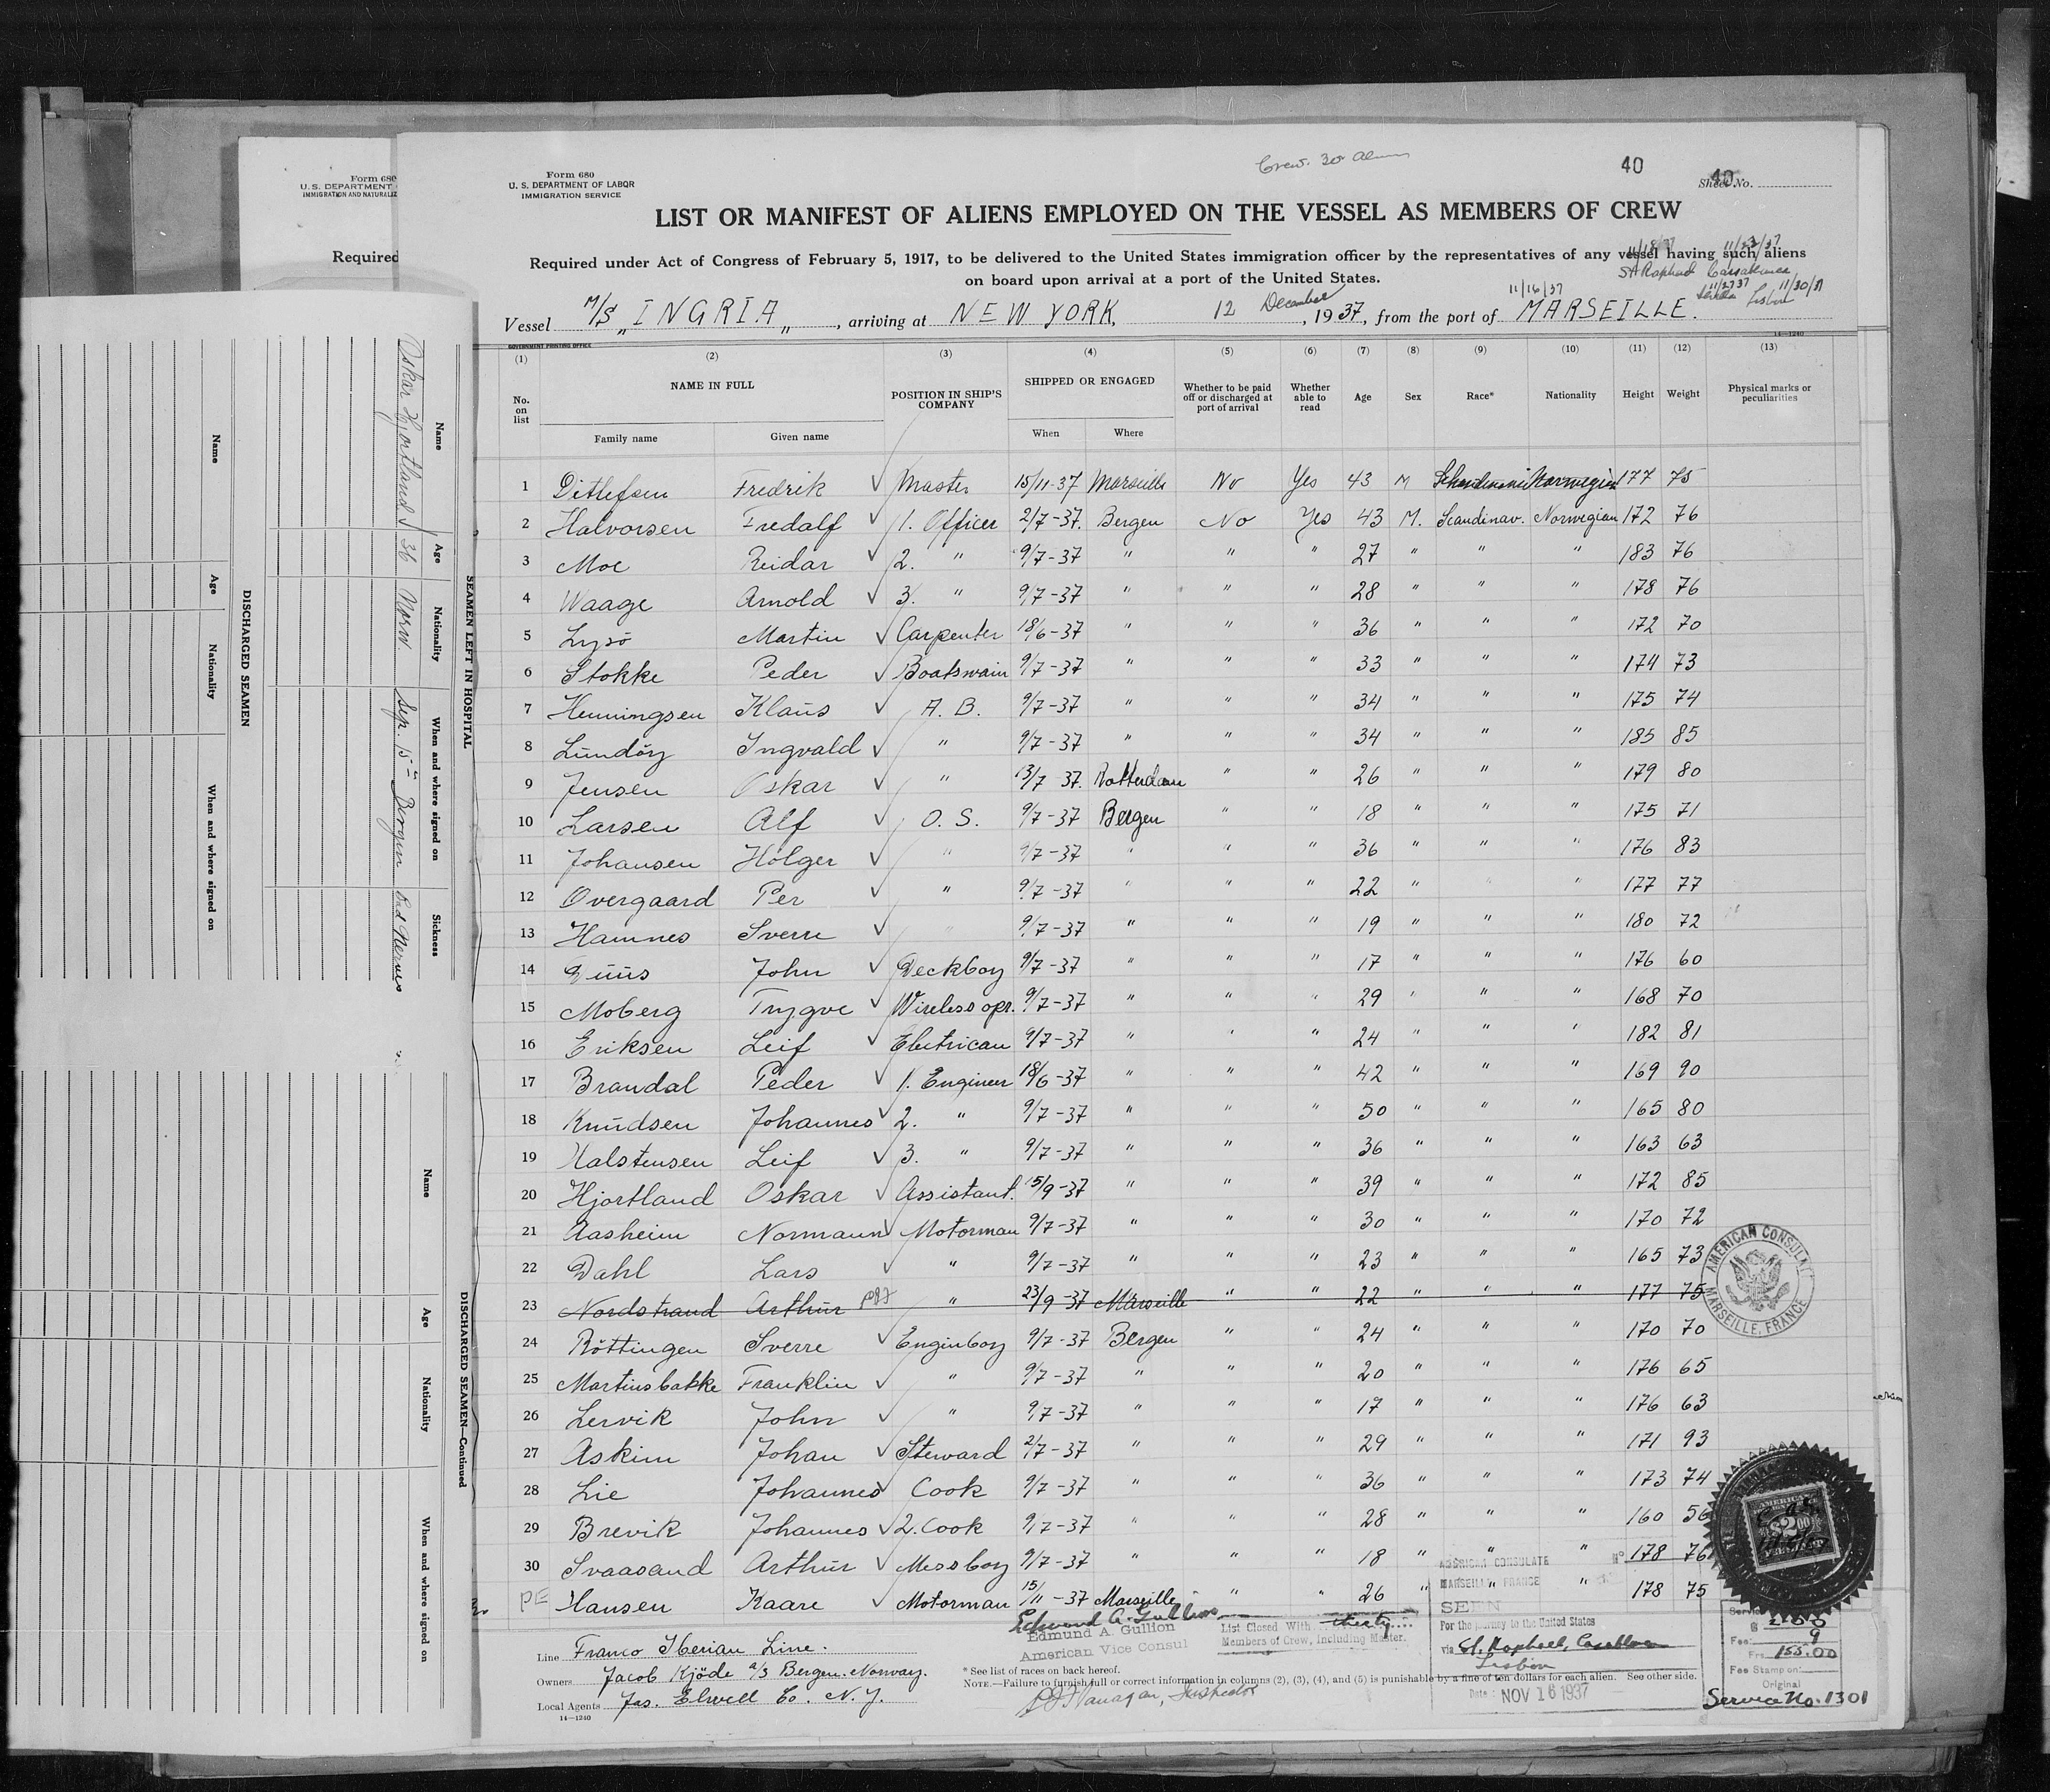 Form 680
U. S. DEPARTMENT
IMMIGRATION AND NATURALIZ
Required
Form 680
U. S. DEPARTMENT OF LABOR
IMMIGRATION SERVICE
Crew. 30
40
40
Sheet No.
LIST OR MANIFEST OF ALIENS EMPLOYED ON THE VESSEL AS MEMBERS OF CREW
Required under Act of Congress of February 5, 1917, to be delivered to the United States immigration officer by the representatives of any vessel having such aliens
on board upon arrival at a port of the United States.
11/18/37 11/23/37
St Raphael Casablanca
11/16/37 11/27/37 11/30/37
Lisbon
Vessel M/S „INGRIA„, arriving at NEW YORK, 12 December, 1937, from the port of MARSEILLE.
14—1240
GOVERNMENT PRINTING OFFICE
(1) (2) (3) (4) (5) (6) (7) (8) (9) (10) (11) (12) (13)
No. on list NAME IN FULL POSITION IN SHIP'S COMPANY SHIPPED OR ENGAGED Whether to be paid off or discharged at port of arrival Whether able to read Age Sex Race* Nationality Height Weight Physical marks or peculiarities
Family name Given name When Where
1 Ditlefsen Fredrik Master 15/11-37 Marseille No Yes 43 M Norwegian 177 75
2 Halvorsen Fredalf 1. Officer 2/7-37. Bergen No Yes 43 M. Scandinav. Norwegian 172 76
3 Moe Reidar 2. " 9/7-37 " " " 27 " " " 183 76
4 Waage Arnold 3. " 9/7-37 " " " 28 " " " 178 76
5 Lysö Martin Carpenter 18/6-37 " " " 36 " " " 172 70
6 Stokke Peder Boatswain 9/7-37 " " " 33 " " " 174 73
7 Henningsen Klaus A. B. 9/7-37 " " " 34 " " " 175 74
8 Lundöy Ingvald " 9/7-37 " " " 34 " " " 185 85
9 Jensen Oskar " 13/7 37. Rotterdam " " 26 " " " 179 80
10 Larsen Alf O. S. 9/7-37 Bergen " " 18 " " " 175 71
11 Johansen Holger " 9/7-37 " " " 36 " " " 176 83
12 Overgaard Per " 9/7-37 " " " 22 " " " 177 77
13 Hamnes Sverre " 9/7-37 " " " 19 " " " 180 72
14 John Deckboy 9/7-37 " " " 17 " " " 176 60
15 Moberg Trygve Wireless opr. 9/7-37 " " " 29 " " " 168 70
16 Eriksen Leif Electrican 9/7-37 " " " 24 " " " 182 81
17 Brandal Peder 1. Engineer 18/6-37 " " " 42 " " " 169 90
18 Knudsen Johannes 2. " 9/7-37 " " " 50 " " " 165 80
19 Halstensen Leif 3. " 9/7-37 " " " 36 " " " 163 63
20 Hjortland Oskar Assistant. 15/9-37 " " " 39 " " " 172 85
21 Aasheim Normann Motorman 9/7-37 " " " 30 " " " 170 72
22 Dahl Lars " 9/7-37 " " " 23 " " " 165 73
23 Nordstrand Arthur " 23/9-37 Marseille " " 22 " " " 177 75
24 Röttingen Sverre Enginboy 9/7-37 Bergen " " 24 " " " 170 70
25 Martinsbakke Franklin " 9/7-37 " " " 20 " " " 176 65
26 Lervik John " 9/7-37 " " " 17 " " " 176 63
27 Askim Johan Steward 2/7-37 " " " 29 " " " 171 93
28 Lie Johannes Cook 9/7-37 " " " 36 " " " 173 74
29 Brevik Johannes 2. Cook 9/7-37 " " " 28 " " " 160 56
30 Svaasand Arthur Messboy 9/7-37 " " " 18 " " " 178 76
PE Hansen Kaare Motorman 15/11-37 Marseille " " 26 " " " 178 75
AMERICAN CONSULATE
MARSEILLE, FRANCE
AMERICAN CONSULATE
MARSEILLE FRANCE
SEEN
For the journey to the United States
via St. Raphael, Casablanca
Lisbon
Date: NOV 16 1937
Edmund A. Gullion
Edmund A. Gullion
American Vice Consul
List Closed With thirty
Members of Crew, Including Master.
$2.00
Fee:
Frs. 155.00
Fee Stamp on:
Original
Service No. 1301
Line Franco Iberian Line.
Owners Jacob Kjöde a/s Bergen. Norway.
Local Agents Jas. Elwell Co. N. Y.
14—1240
* See list of races on back hereof.
NOTE.—Failure to furnish full or correct information in columns (2), (3), (4), and (5) is punishable by a fine of ten dollars for each alien. See other side.
Flanagan, Inspector
SEAMEN LEFT IN HOSPITAL
Name Age Nationality When and where signed on Sickness
Oskar Hjortland 36 Norw. Sep. 15th Bergen Bad Nerves
DISCHARGED SEAMEN
Name Age Nationality When and where signed on
DISCHARGED SEAMEN—Continued
Name Age Nationality When and where signed on